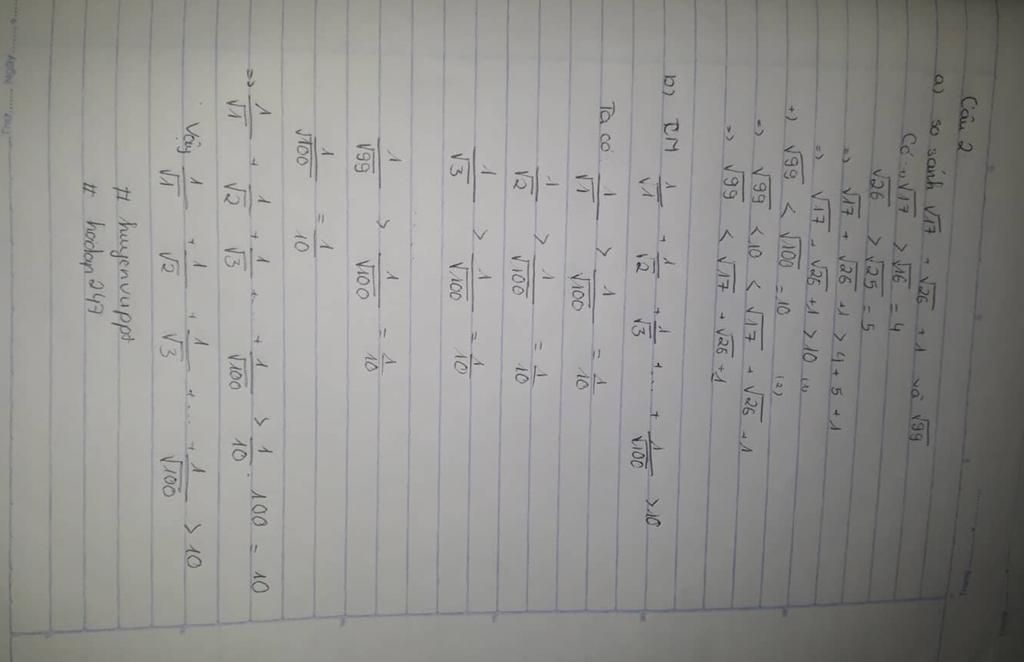 Câu 2
a) so sánh √17 + √26 + 1 và √99
Có: √17 > √16 = 4
√26 > √25 = 5
=> √17 + √26 + 1 > 4 + 5 + 1
=> √17 + √26 + 1 > 10 (1)
+) √99 < √100 = 10 (2)
=> √99 < 10 < √17 + √26 + 1
=> √99 < √17 + √26 + 1
b) CM 1/√1 + 1/√2 + 1/√3 + ... + 1/√100 > 10
Ta có 1/√1 > 1/√100 = 1/10
1/√2 > 1/√100 = 1/10
1/√3 > 1/√100 = 1/10
1/√99 > 1/√100 = 1/10
1/√100 = 1/10
=> 1/√1 + 1/√2 + 1/√3 + ... + 1/√100 > 1/10 . 100 = 10
Vậy 1/√1 + 1/√2 + 1/√3 + ... + 1/√100 > 10
# huyenvuppt
# hoidap247